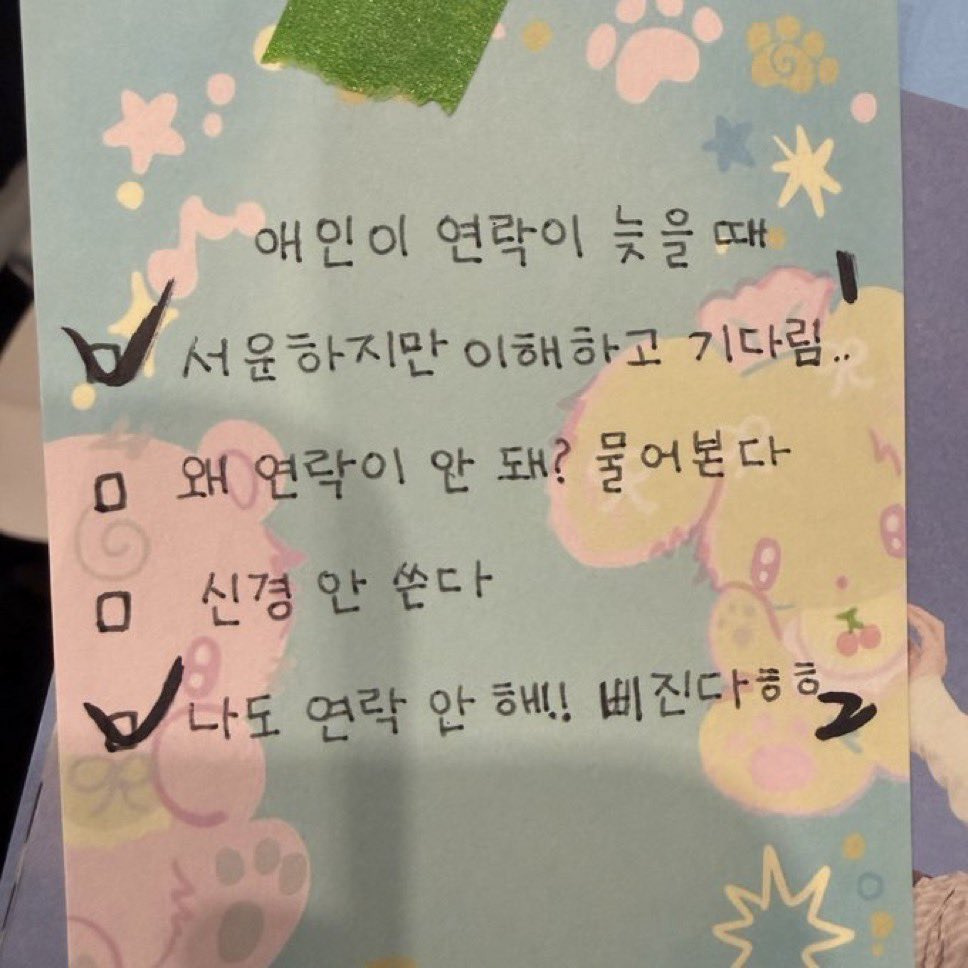 애인이 연락이 늦을 때
서운하지만 이해하고 기다림.. 1
왜 연락이 안 돼? 물어본다
신경 안 쓴다
나도 연락 안 해!! 삐진다ㅎㅎ 2